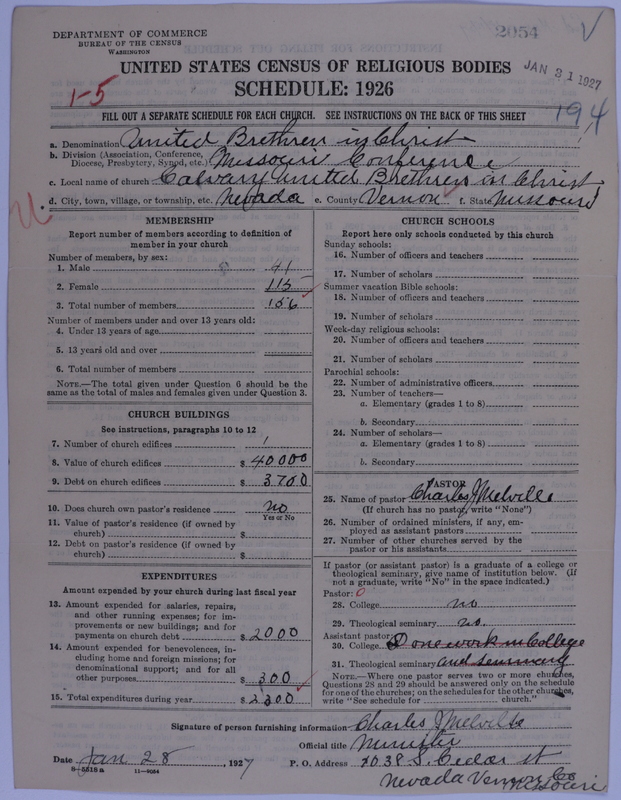 DEPARTMENT OF COMMERCE
BUREAU OF THE CENSUS
WASHINGTON
2054
JAN 31 1927
UNITED STATES CENSUS OF RELIGIOUS BODIES
SCHEDULE: 1926
1-5
194
FILL OUT A SEPARATE SCHEDULE FOR EACH CHURCH. SEE INSTRUCTIONS ON THE BACK OF THIS SHEET
a. Denomination United Brethren in Christ
b. Division (Association, Conference, Diocese, Presbytery, Synod, etc.) Missouri Conference
c. Local name of church Calvary United Brethren in Christ
d. City, town, village, or township, etc. Nevada e. County Vernon f. State Missouri
MEMBERSHIP
Report number of members according to definition of
member in your church
Number of members, by sex:
1. Male 41
2. Female 115
3. Total number of members 156
Number of members under and over 13 years old:
4. Under 13 years of age
5. 13 years old and over
6. Total number of members
NOTE.—The total given under Question 6 should be the
same as the total of males and females given under Question 3.
CHURCH BUILDINGS
See instructions, paragraphs 10 to 12
7. Number of church edifices 1
8. Value of church edifices $ 40000
9. Debt on church edifices $ 3700
10. Does church own pastor's residence no
Yes or No
11. Value of pastor's residence (if owned by
church) $
12. Debt on pastor's residence (if owned by
church) $
EXPENDITURES
Amount expended by your church during last fiscal year
13. Amount expended for salaries, repairs,
and other running expenses; for im-
provements or new buildings; and for
payments on church debt $ 2000
14. Amount expended for benevolences, in-
cluding home and foreign missions; for
denominational support; and for all
other purposes $ 300
15. Total expenditures during year $ 2300
CHURCH SCHOOLS
Report here only schools conducted by this church
Sunday schools:
16. Number of officers and teachers
17. Number of scholars
Summer vacation Bible schools:
18. Number of officers and teachers
19. Number of scholars
Week-day religious schools:
20. Number of officers and teachers
21. Number of scholars
Parochial schools:
22. Number of administrative officers
23. Number of teachers—
a. Elementary (grades 1 to 8)
b. Secondary
24. Number of scholars—
a. Elementary (grades 1 to 8)
b. Secondary
PASTOR
25. Name of pastor Charles J Melville
(If church has no pastor, write "None")
26. Number of ordained ministers, if any, em-
ployed as assistant pastors
27. Number of other churches served by the
pastor or his assistants
If pastor (or assistant pastor) is a graduate of a college or
theological seminary, give name of institution below. (If
not a graduate, write "No" in the space indicated.)
Pastor: 0
28. College no
29. Theological seminary no.
Assistant pastor:
30. College done work in College
31. Theological seminary and seminary
NOTE.—Where one pastor serves two or more churches,
Questions 28 and 29 should be answered only on the schedule
for one of the churches; on the schedules for the other churches,
write "See schedule for church."
Signature of person furnishing information Charles J Melville
Official title Minister
Date Jan 28, 1927 P. O. Address 1038 S. Cedar st
8-5518 a 11-9054
Nevada Vernon Co Missouri